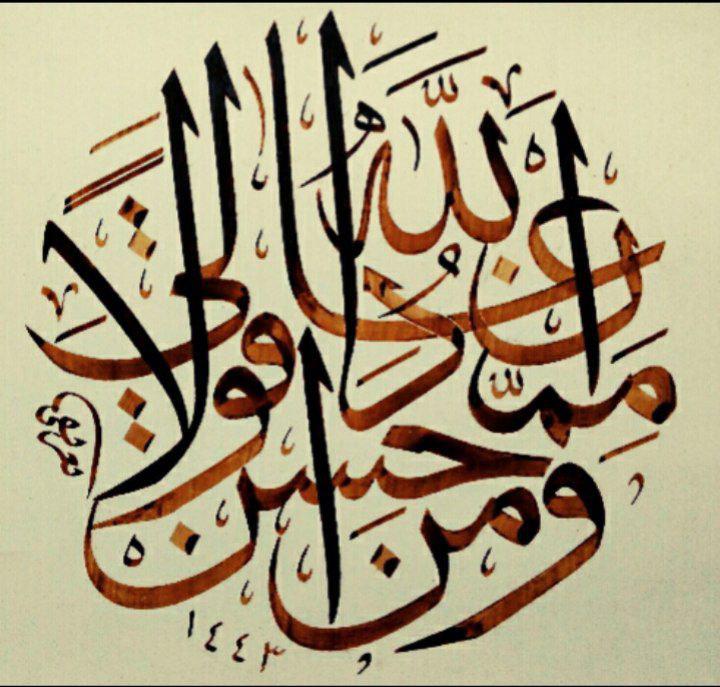 وَمَنْ أَحْسَنُ قَوْلًا مِمَّنْ دَعَا إِلَى اللَّهِ
١٤٤٣